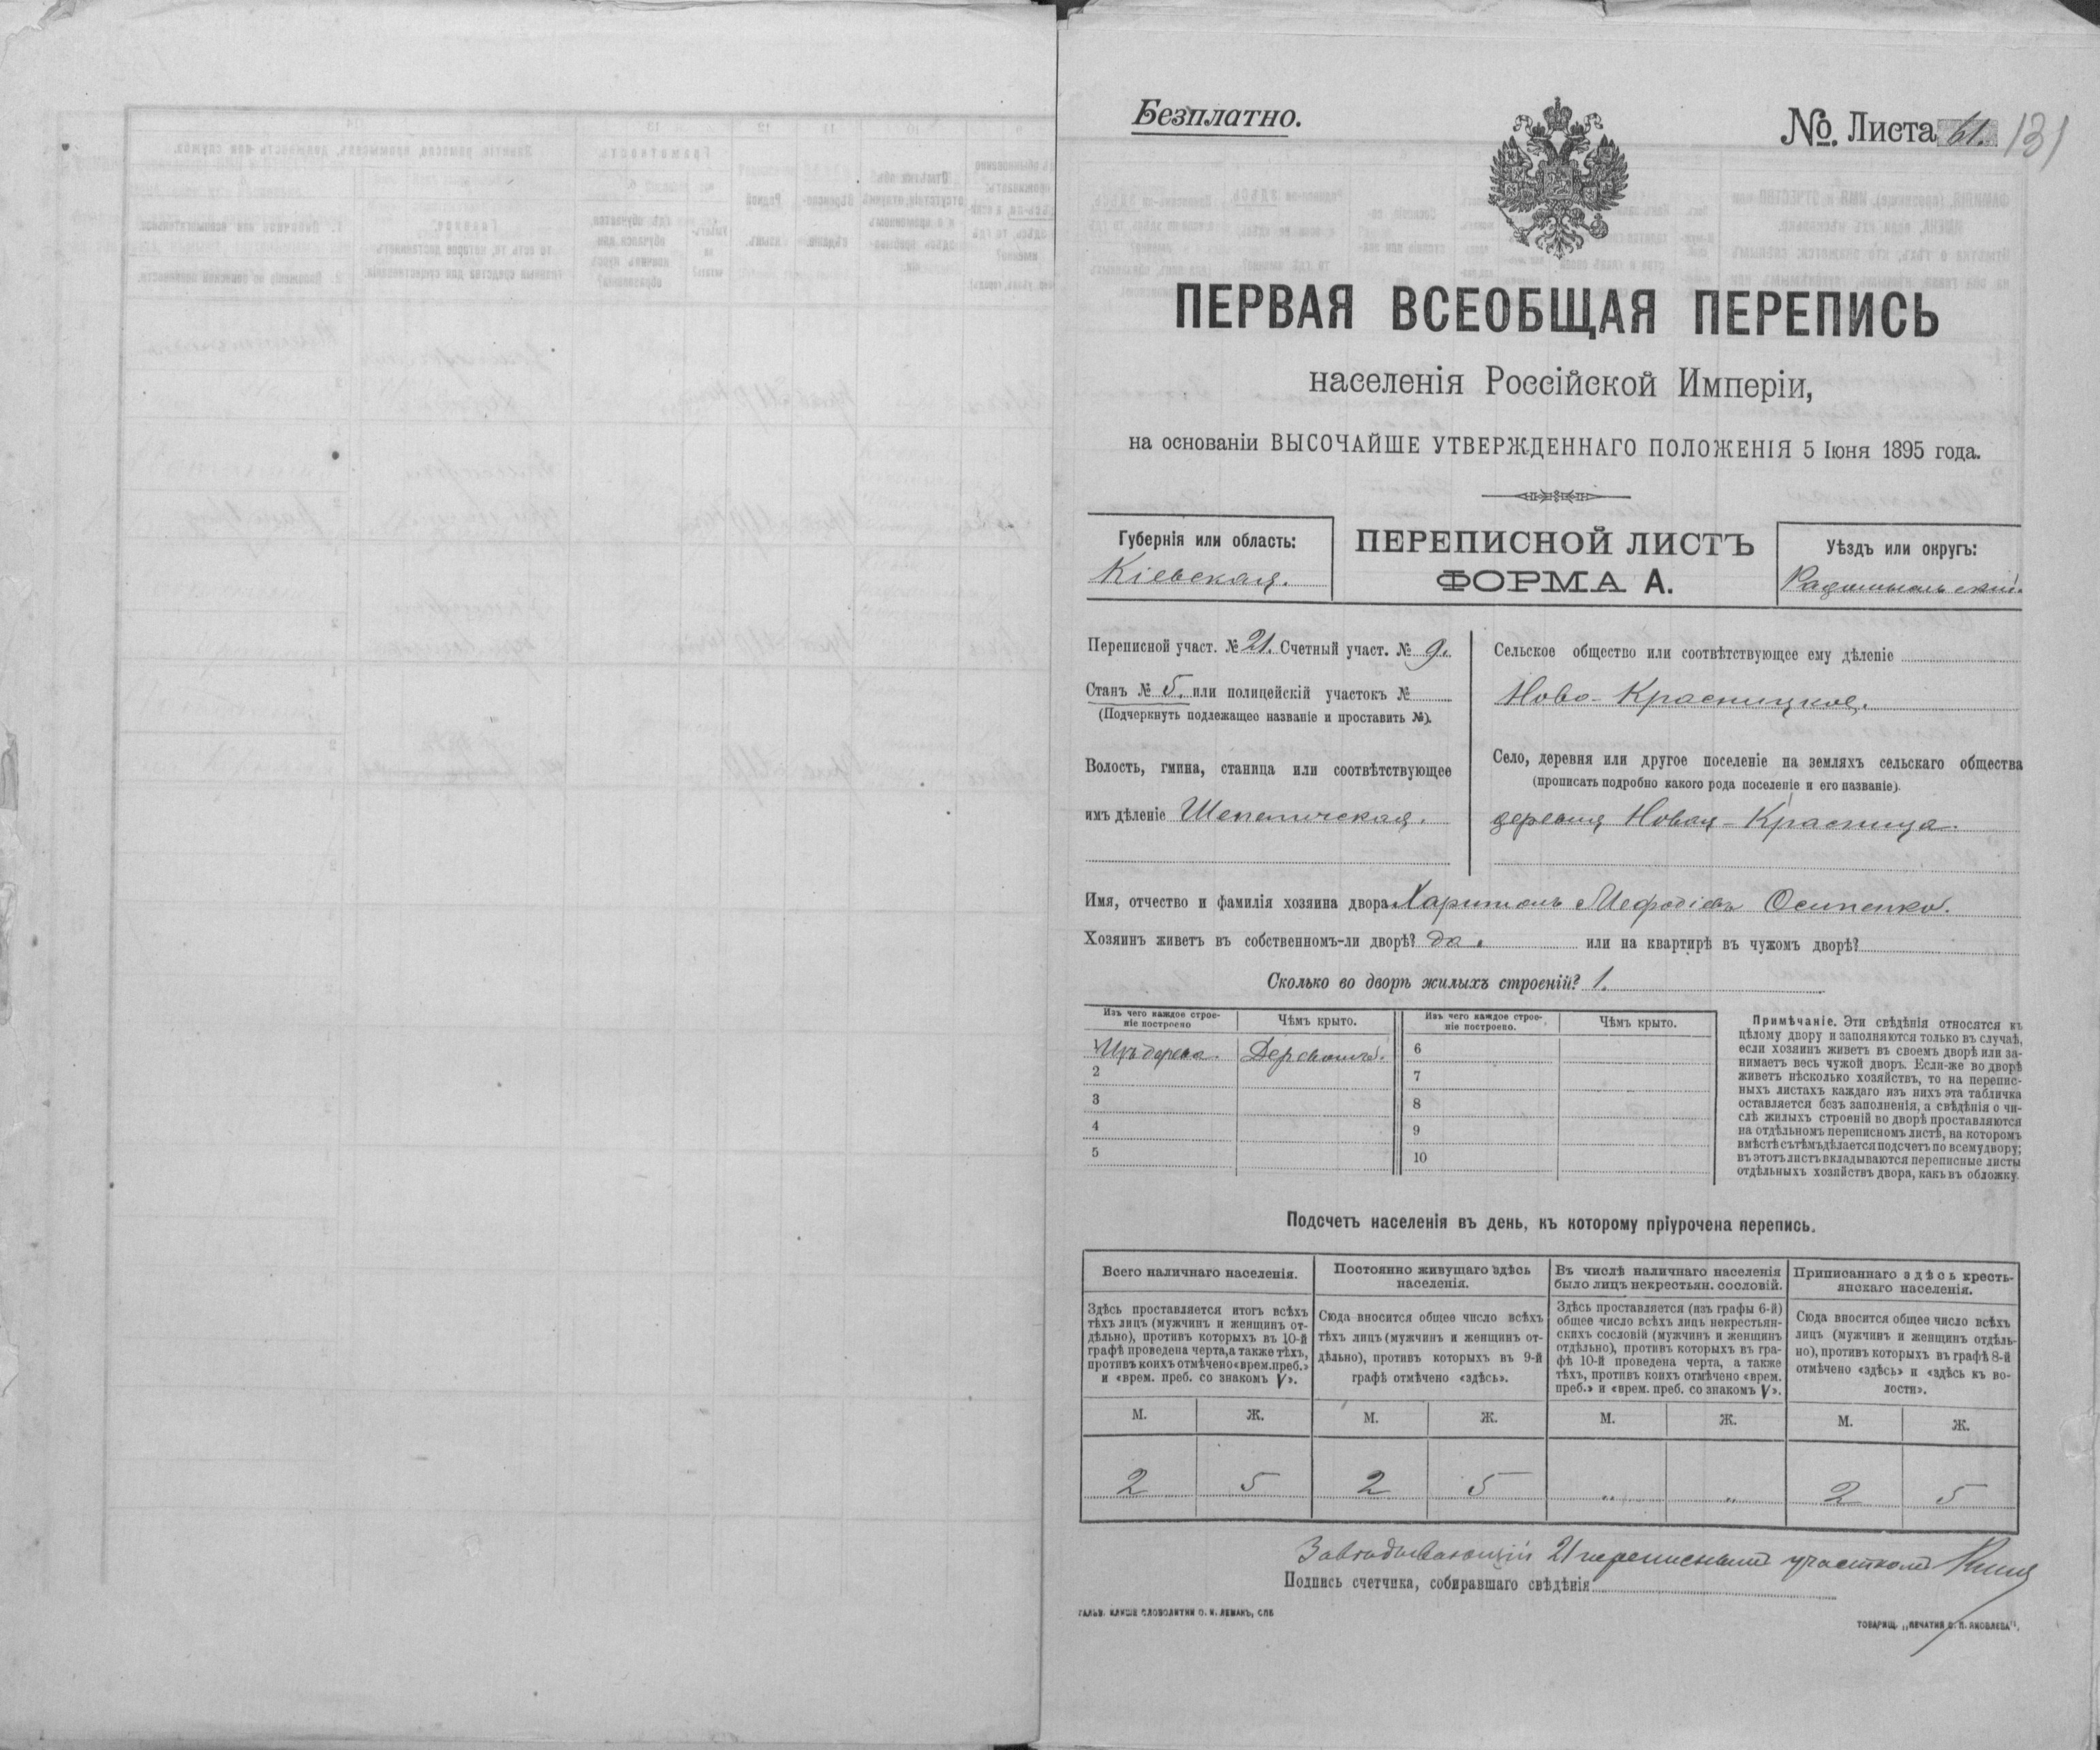 Безплатно.
№. Листа 61.
131
ПЕРВАЯ ВСЕОБЩАЯ ПЕРЕПИСЬ
населенія Россійской Имперіи,
на основаніи ВЫСОЧАЙШЕ УТВЕРЖДЕННАГО ПОЛОЖЕНІЯ 5 Іюня 1895 года.
Губернія или область:
Кіевская.
ПЕРЕПИСНОЙ ЛИСТЪ
ФОРМА А.
Уѣздъ или округъ:
Радомысльскій.
Переписной участ. № 21. Счетный участ. № 9.
Станъ № 5. или полицейскій участокъ №
(Подчеркнуть подлежащее названіе и проставить №).
Волость, гмина, станица или соотвѣтствующее
имъ дѣленіе Шепеличская.
Сельское общество или соотвѣтствующее ему дѣленіе
Ново-Красницкое.
Село, деревня или другое поселеніе на земляхъ сельскаго общества
(прописать подробно какого рода поселеніе и его названіе).
деревня Новая-Красница.
Имя, отчество и фамилія хозяина двора Харитонъ Мефодіевъ Осипенко.
Хозяинъ живетъ въ собственномъ-ли дворѣ? да. или на квартирѣ въ чужомъ дворѣ?
Сколько во дворѣ жилыхъ строеній? 1.
Изъ чего каждое строе-
ніе построено
Чѣмъ крыто.
Изъ чего каждое строе-
ніе построено.
Чѣмъ крыто.
1 Изъ дерева. Деревомъ. 6
2 7
3 8
4 9
5 10
Примѣчаніе. Эти свѣдѣнія относятся къ
цѣлому двору и заполняются только въ случаѣ,
если хозяинъ живетъ въ своемъ дворѣ или за-
нимаетъ весь чужой дворъ. Если-же во дворѣ
живетъ нѣсколько хозяйствъ, то на перепис-
ныхъ листахъ каждаго изъ нихъ эта табличка
оставляется безъ заполненія, а свѣдѣнія о чи-
слѣ жилыхъ строеній во дворѣ проставляются
на отдѣльномъ переписномъ листѣ, на которомъ
вмѣстѣ съ тѣмъ дѣлается подсчетъ по всему двору;
въ этотъ листъ вкладываются переписные листы
отдѣльныхъ хозяйствъ двора, какъ въ обложку.
Подсчетъ населенія въ день, къ которому пріурочена перепись.
Всего наличнаго населенія.
Здѣсь проставляется итогъ всѣхъ
тѣхъ лицъ (мужчинъ и женщинъ от-
дѣльно), противъ которыхъ въ 10-й
графѣ проведена черта, а также тѣхъ,
противъ коихъ отмѣчено «врем. преб.»
и «врем. преб. со знакомъ V».
Постоянно живущаго здѣсь
населенія.
Сюда вносится общее число всѣхъ
тѣхъ лицъ (мужчинъ и женщинъ от-
дѣльно), противъ которыхъ въ 9-й
графѣ отмѣчено «здѣсь».
Въ числѣ наличнаго населенія
было лицъ некрестьян. сословій.
Здѣсь проставляется (изъ графы 6-й)
общее число всѣхъ лицъ некрестьян-
скихъ сословій (мужчинъ и женщинъ
отдѣльно), противъ которыхъ въ гра-
фѣ 10-й проведена черта, а также
тѣхъ, противъ коихъ отмѣчено «врем.
преб.» и «врем. преб. со знакомъ V».
Приписаннаго здѣсь кресть-
янскаго населенія.
Сюда вносится общее число всѣхъ
лицъ (мужчинъ и женщинъ отдѣль-
но), противъ которыхъ въ графѣ 8-й
отмѣчено «здѣсь» и «здѣсь къ во-
лости».
М. Ж. М. Ж. М. Ж. М. Ж.
2 5 2 5 „ „ 2 5
Завѣдывающій 21 переписнымъ участкомъ
Подпись счетчика, собиравшаго свѣдѣнія
ГАЛЬВ. КЛИШЕ СЛОВОЛИТНИ О. И. ЛЕМАНЪ, СПБ
ТОВАРИЩ. „ПЕЧАТНЯ С. П. ЯКОВЛЕВА".